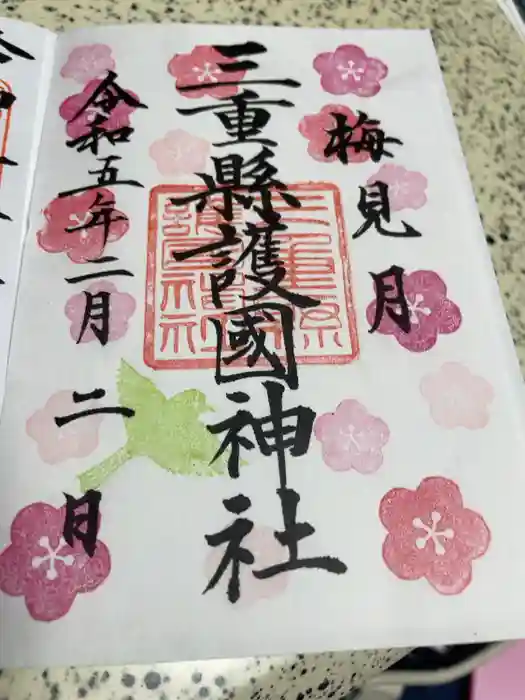 梅見月
三重縣護國神社
三重県護国神社
令和五年二月二日